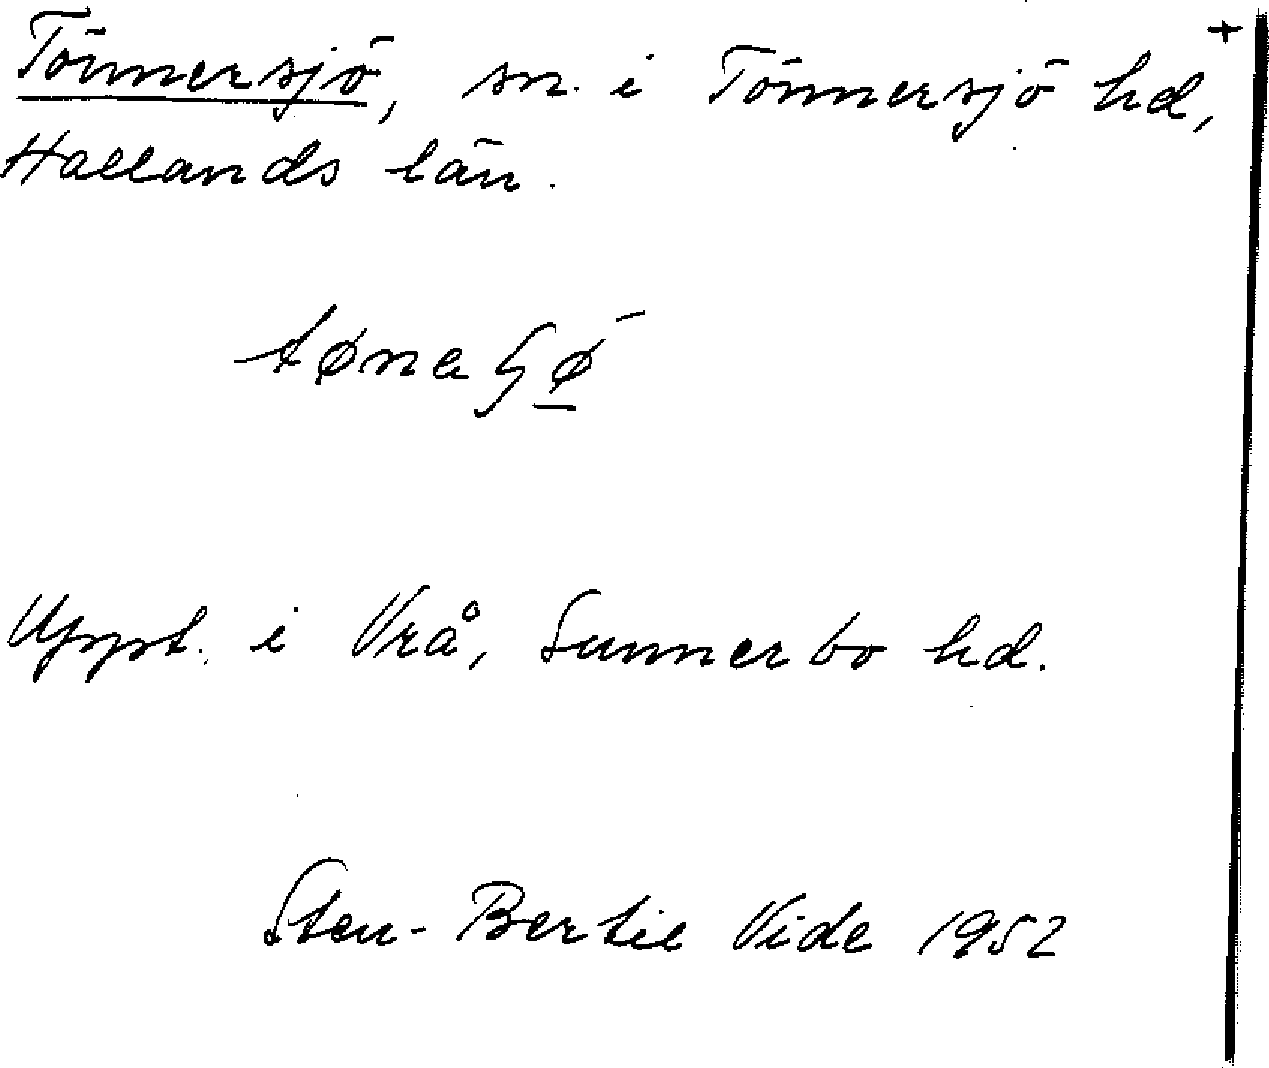 +
Tönnersjö, sn. i Tönnersjö hd,
Hallands län.
Uppt. i Vrå, Sunnerbo hd.
Sten-Bertil Vide 1952